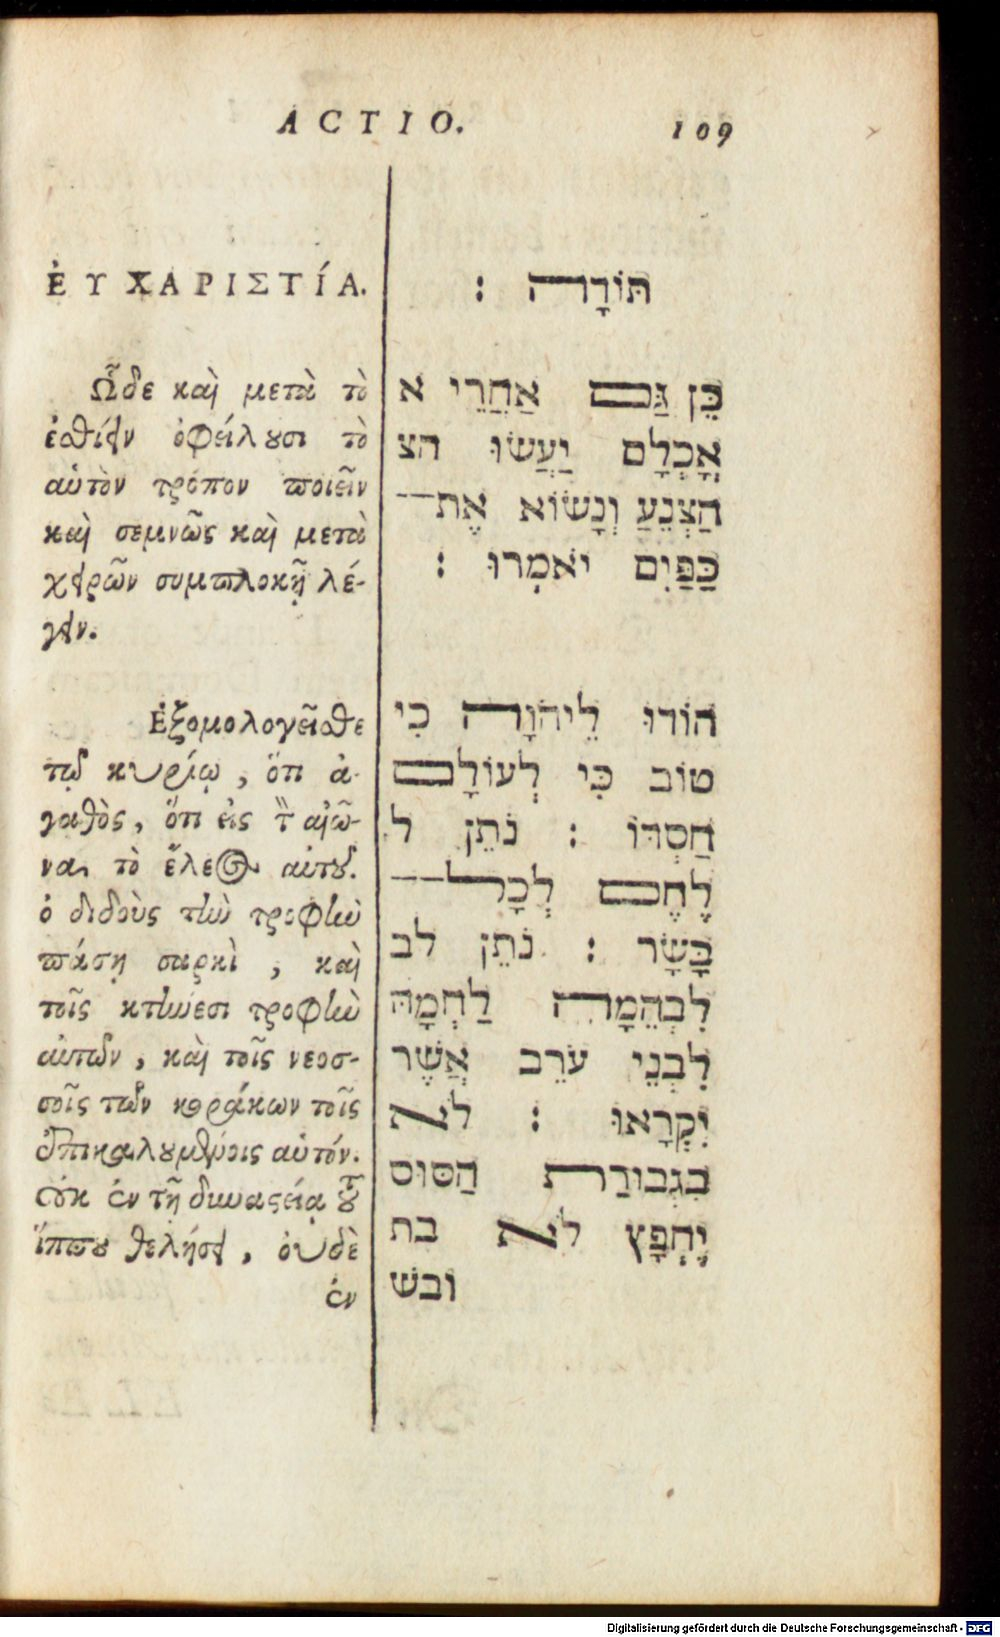 ACTIO. 109
ἘΥΧΑΡΙΣΤΊΑ.
Ὧδε καὶ μετὰ τὸ
ἐσθίειν ὀφείλουσι τὸ
αὐτὸν τρόπον ποιεῖν
καὶ σεμνῶς καὶ μετὰ
χειρῶν συμπλοκῇ λέ-
γειν.
Ἐξομολογεῖσθε
τῷ κυρίῳ, ὅτι ἀ-
γαθὸς, ὅτι εἰς τ αἰῶ-
να, τὸ ἔλεος αὐτοῦ.
ὁ διδοὺς τὴν τροφὴν
πάσῃ σαρκὶ, καὶ
τοῖς κτήνεσι τροφὴν
αὐτῶν, καὶ τοῖς νεοσ-
σοῖς τῶν κοράκων τοῖς
ἐπικαλουμένοις αὐτόν.
οὐκ ἐν τῇ δυναστείᾳ τοῦ
ἵππου θελήσει, οὐδὲ
ἐν
תּוֹדָה :
כֵּן גַּם אַחֲרֵי א
אָכְלָם יַעֲשׂוּ הצ
הַצְנֵעַ וְנָשׂוֹא אֶת־
כַּפַּיִם יֹאמְרוּ :
הוֹדוּ לַיהֹוָה כִּי
טוֹב כִּי לְעוֹלָם
חַסְדּוֹ : נֹתֵן ל
לֶחֶם לְכָל־
בָּשָׂר : נֹתֵן לב
לִבְהֵמָה לַחְמָהּ
לִבְנֵי עֹרֵב אֲשֶׁר
יִקְרָאוּ : לֹא
בִגְבוּרַת הַסּוּס
יֶחְפָּץ לֹא בת
ובש